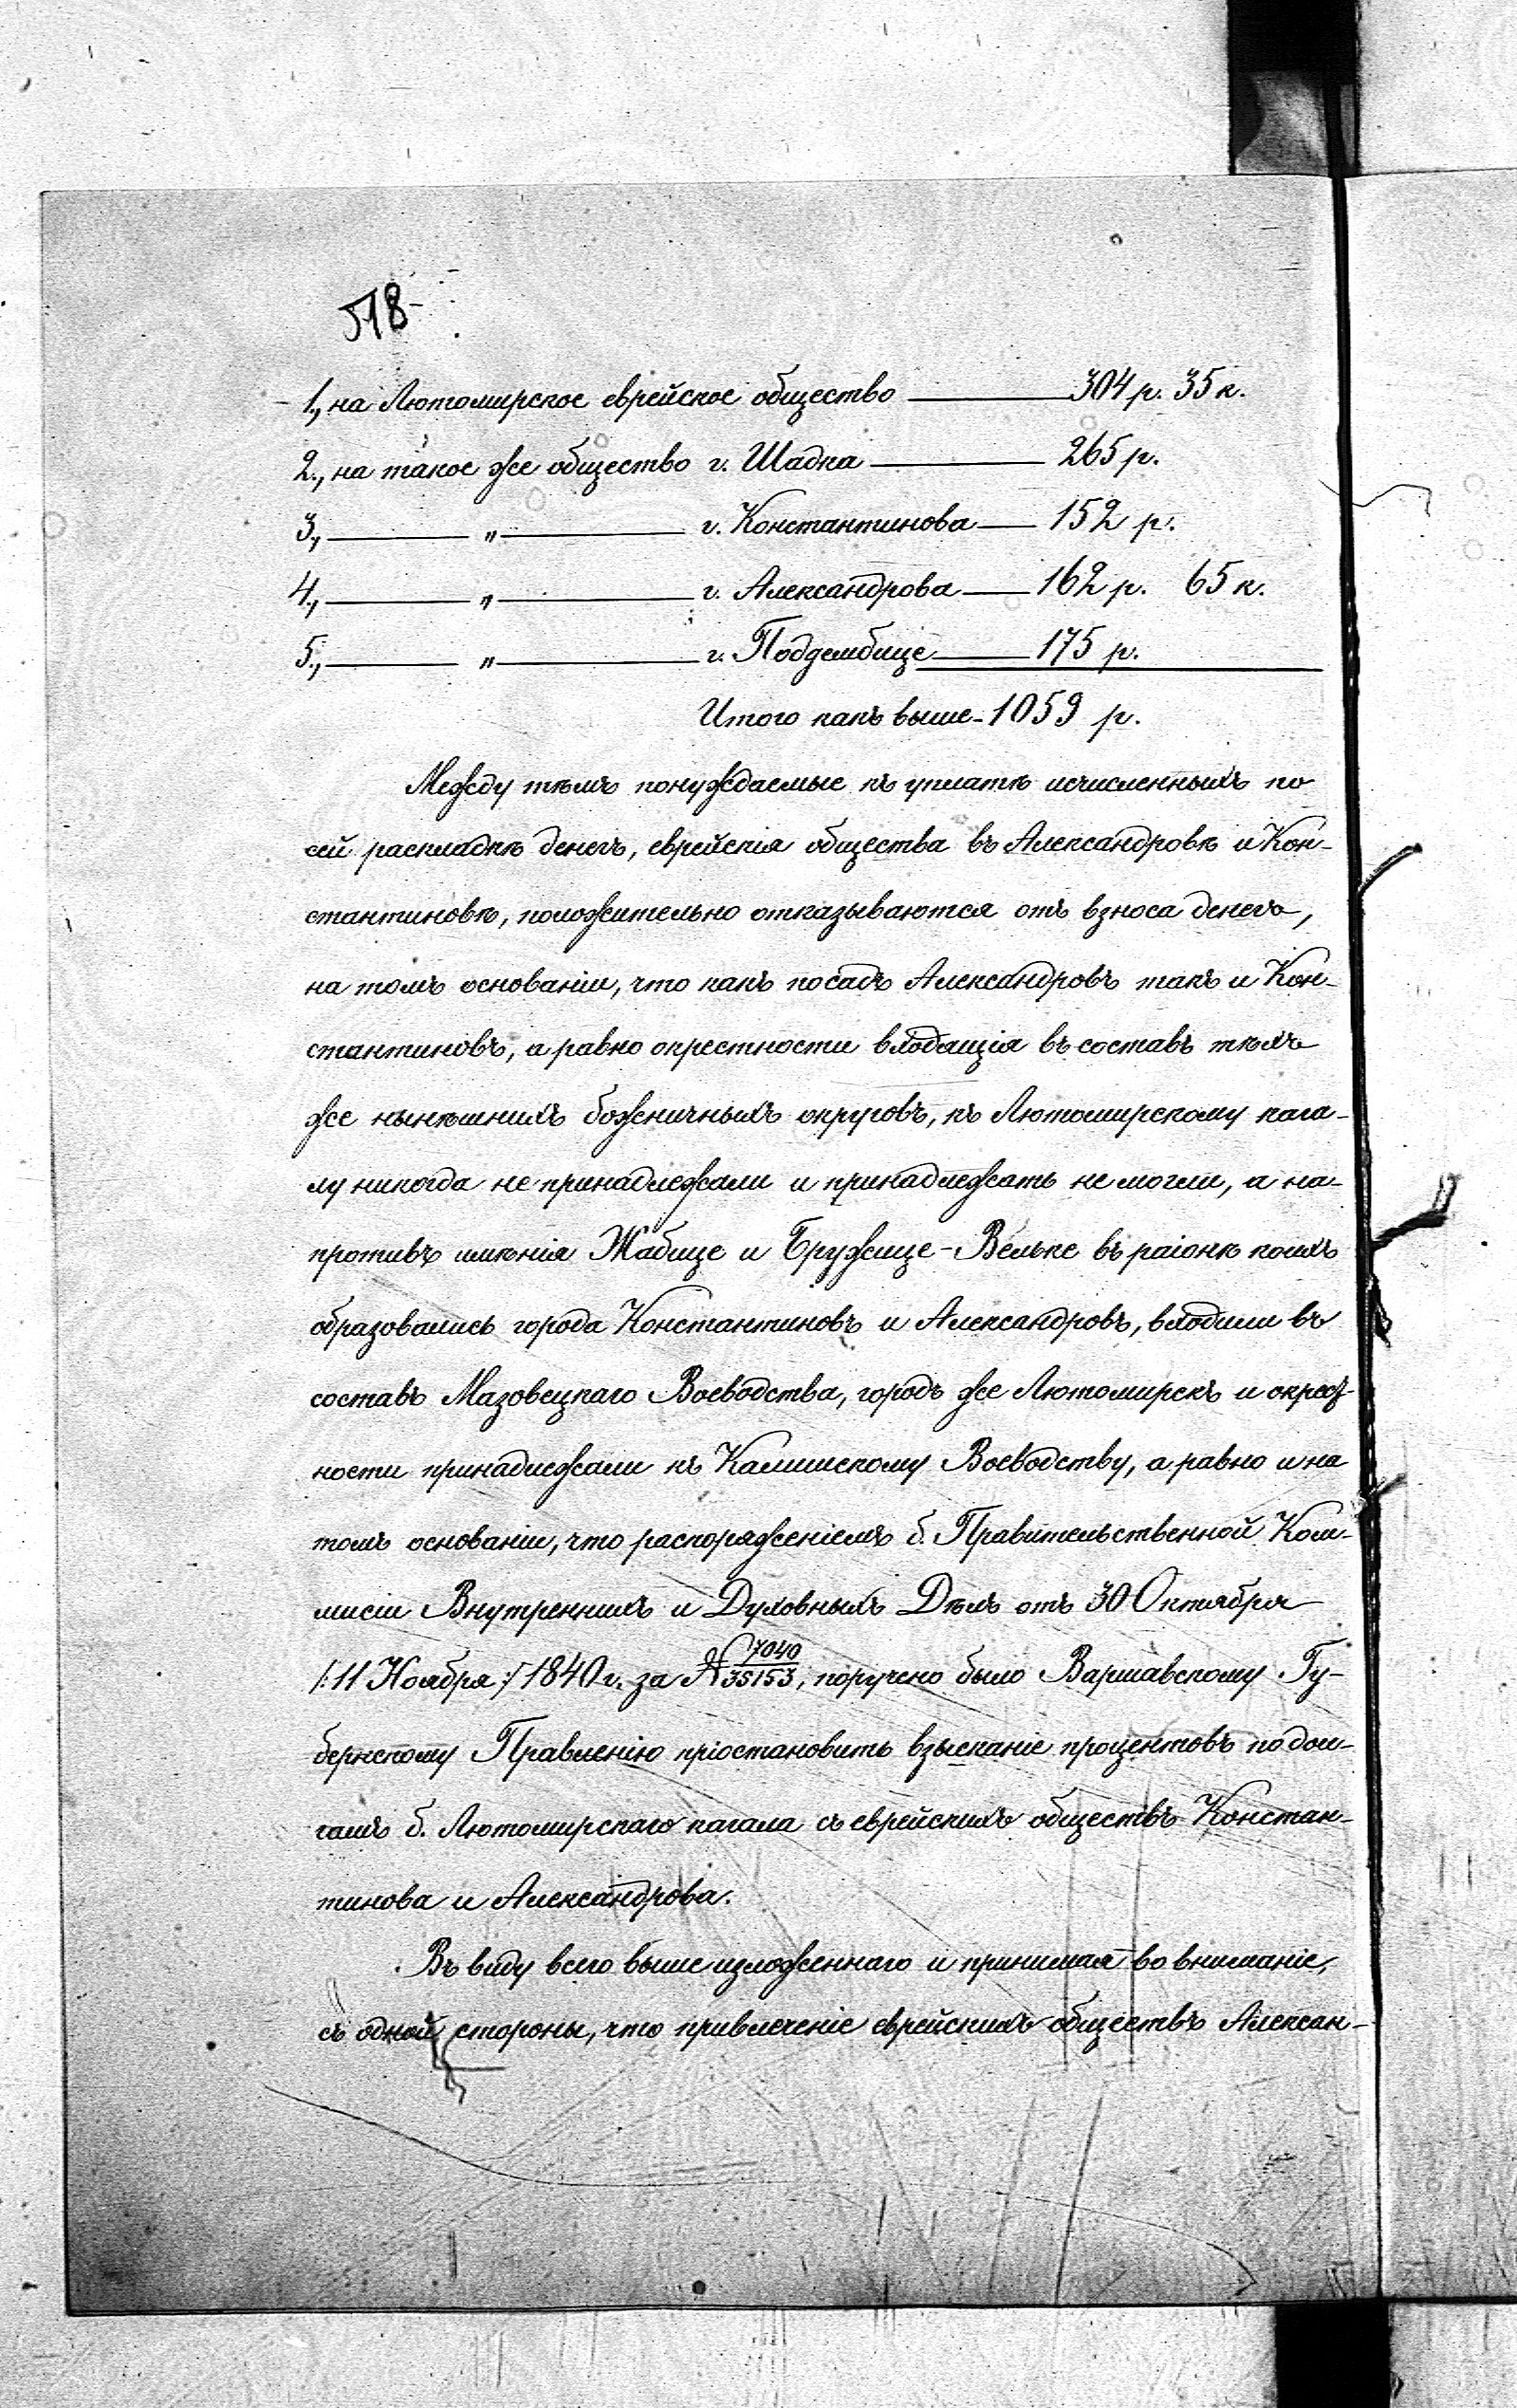 518-
1., на Лютомирское еврейское общество — 304 р. 35 к.
2., на такое же общество г. Шадка — 265 р.
3., — " — г. Константинова — 152 р.
4., — " — г. Александрова — 162 р. 65 к.
5., — " — г. Поддембице — 175 р.
Итого какъ выше - 1059 р.
Между тѣмъ понуждаемые къ уплатѣ исчисленныхъ по
сей раскладкѣ денегъ, еврейскія общества въ Александровѣ и Кон-
стантиновѣ, положительно отказываются отъ взноса денегъ,
на томъ основаніи, что какъ посадъ Александровъ такъ и Кон-
стантиновъ, а равно окрестности входящія въ составъ тѣхъ
же нынѣшнихъ божничныхъ округовъ, къ Лютомирскому кага-
лу никогда не принадлежали и принадлежать не могли, а на-
противъ имѣнія Жабице и Бружице-Вельке въ раіонѣ коихъ
образовались города Константиновъ и Александровъ, входили въ
составъ Мазовецкаго Воеводства, городъ же Лютомирскъ и окрест-
ности принадлежали къ Калишскому Воеводству, а равно и на
томъ основаніи, что распоряженіемъ б. Правительственной Ком-
мисіи Внутреннихъ и Духовныхъ Дѣлъ отъ 30 Октября
/:11 Ноября:/ 1840 г. за № 7040/35153, поручено было Варшавскому Гу-
бернскому Правленію пріостановить взысканіе процентовъ по дол-
гамъ б. Лютомирскаго кагала съ еврейскихъ обществъ Констан-
тинова и Александрова.
Въ виду всего выше изложеннаго и принимая во вниманіе,
съ одной стороны, что привлеченіе еврейскихъ обществъ Алексан-